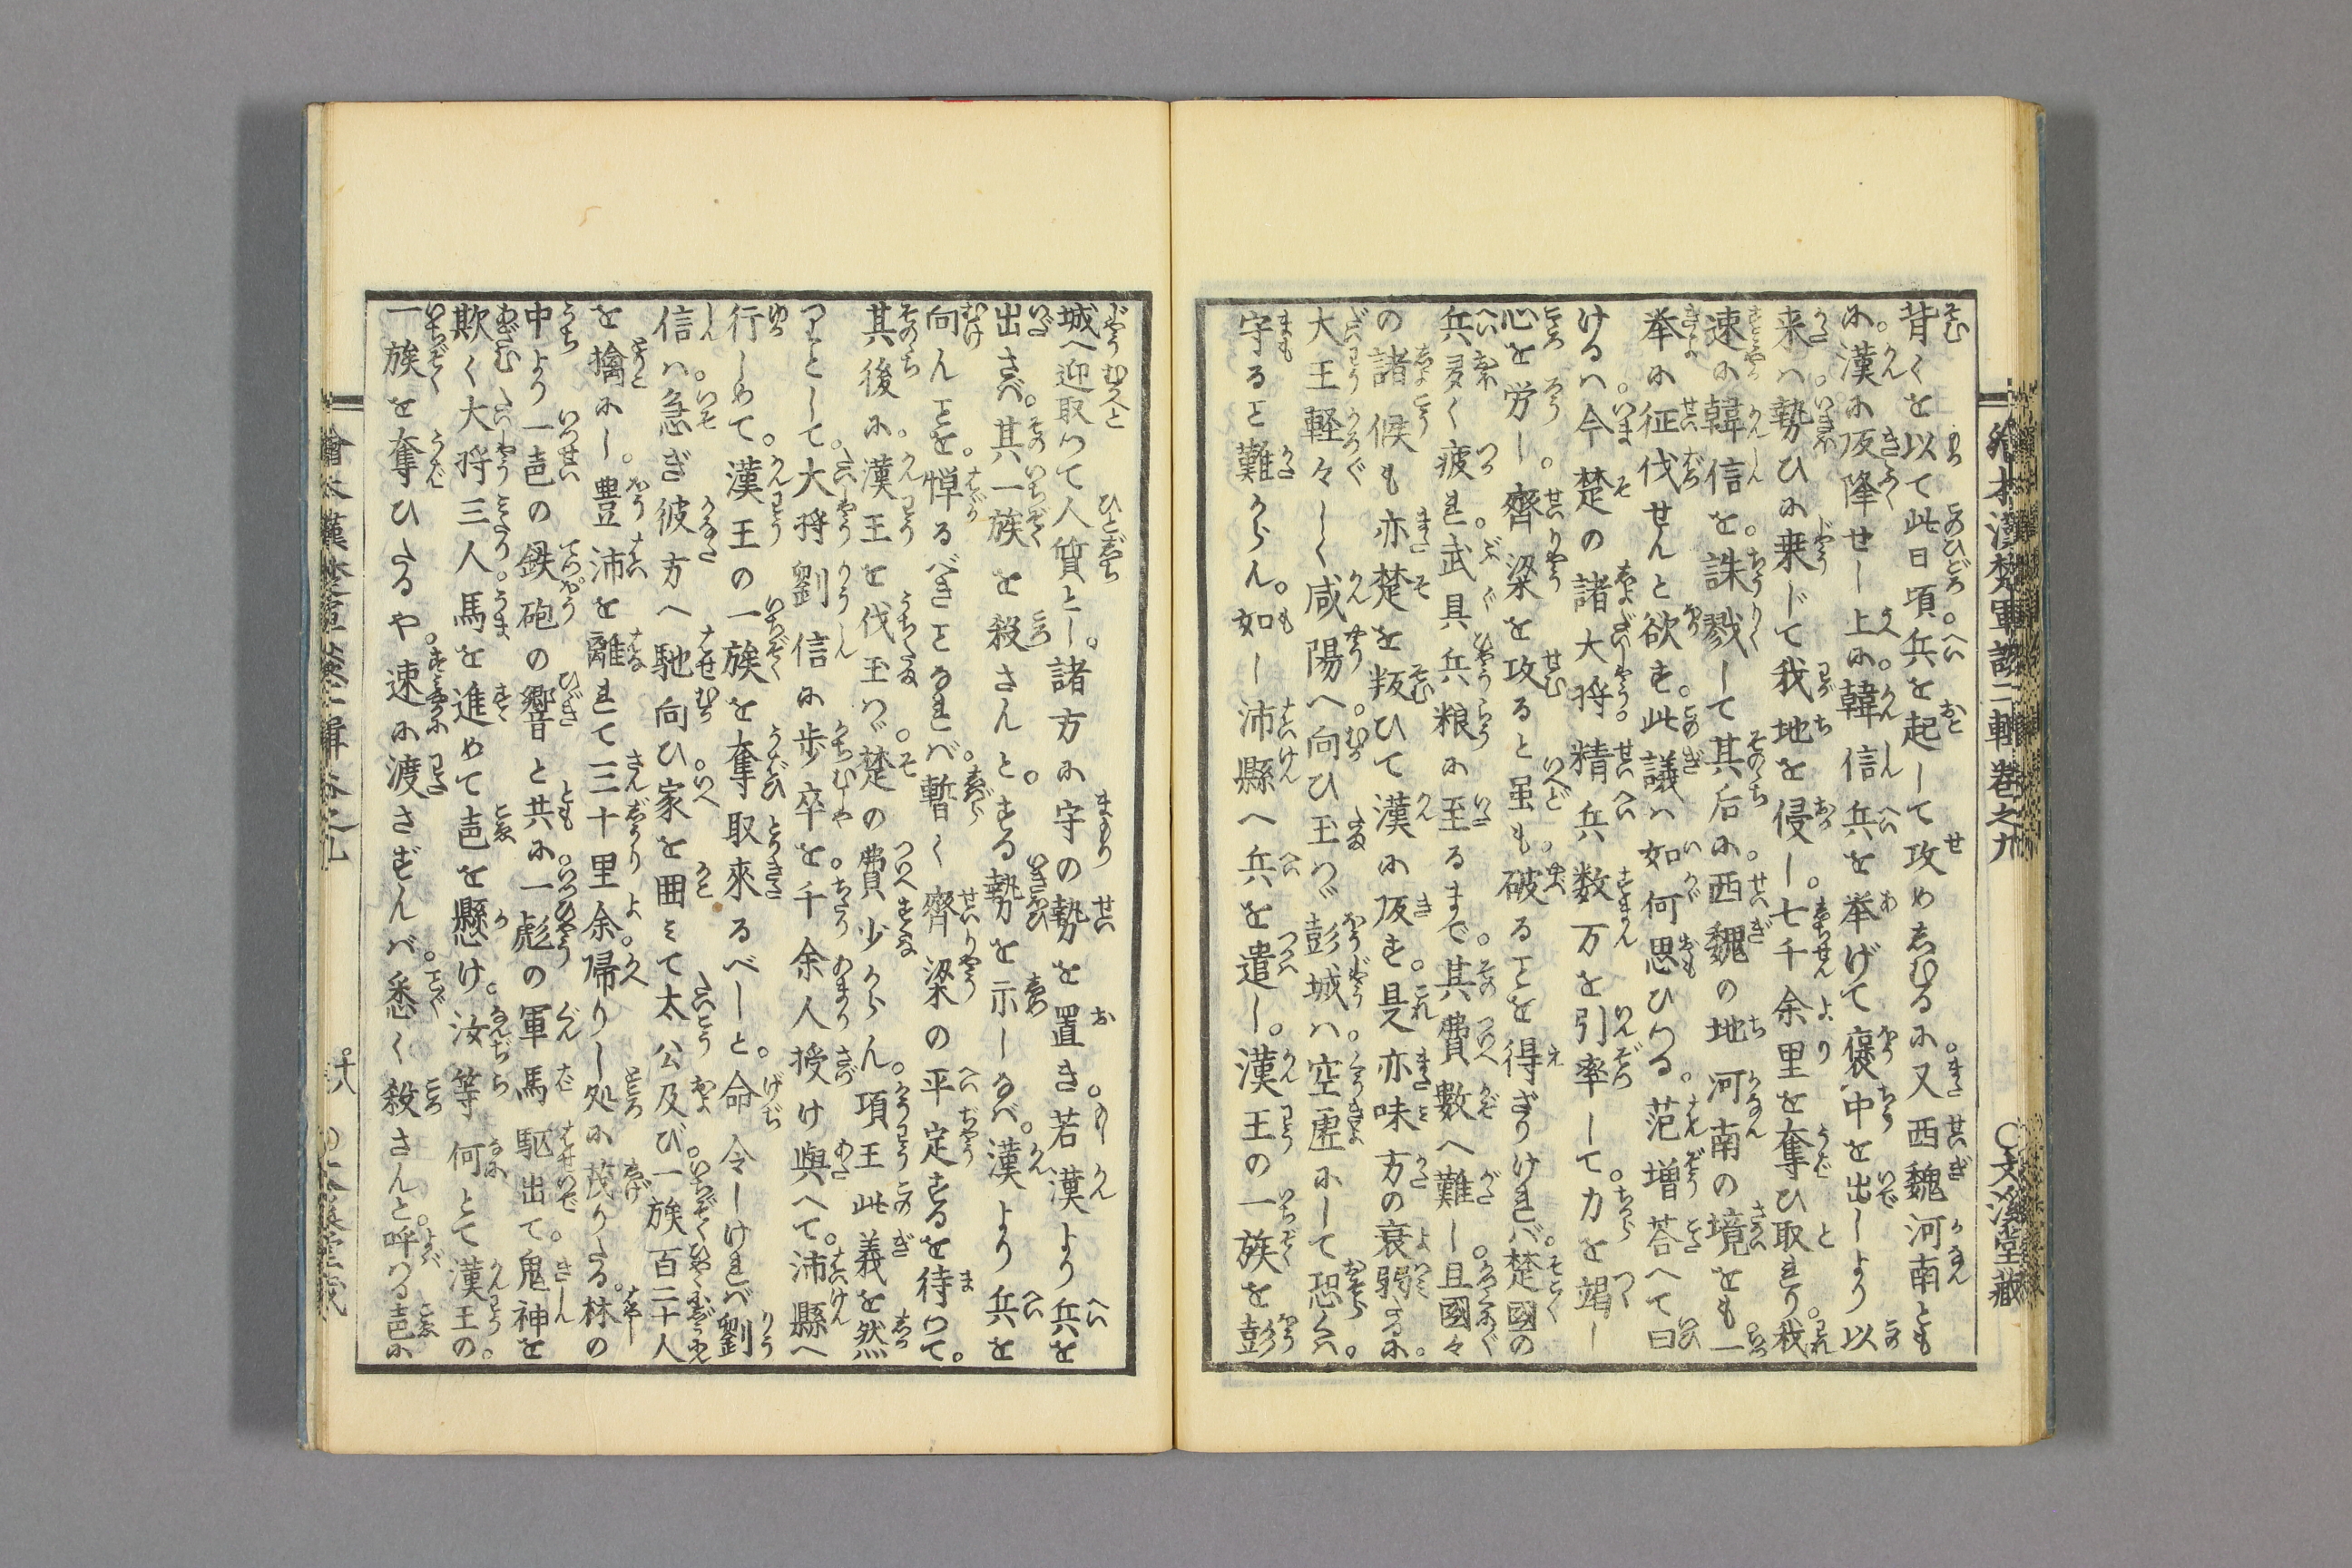 繪本漢楚軍談二輯卷之九
文溪堂藏
背くを以て此日頃兵を起して攻めゑむるに又西魏河南とも
に漢に皈降せし上に韓信兵を挙げて褒中を出しより以
来ハ勢ひに乗じて我地を侵し七千余里を奪ひ取れり我
速に韓信を誅戮して其后に西魏の地河南の境をも一
挙に征伐せんと欲す此議ハ如何思ひつる范増荅へて曰
けるハ今楚の諸大将精兵数万を引率して力を竭し
心を労し齊梁を攻ると虽も破ることを得ざりけれバ楚國の
兵多く疲れ武具兵粮に至るまで其費數へ難し且國々
の諸候も亦楚を叛ひて漢に皈す是亦味方の衰弱なるに
大王軽々しく咸陽へ向ひ玉ハヾ彭城ハ空虚にして恐くハ
守ること難からん如し沛縣へ兵を遣し漢王の一族を彭
城へ迎取つて人質とし諸方に守の勢を置き若漢より兵を
出さバ其一族を殺さんとする勢を示しなバ漢より兵を
向んことを憚るべきことなれバ暫く齊梁の平定するを待つて
其後に漢王を伐玉ハヾ楚の費少からん項王此義を然
りとして大将劉信に歩卒を千余人授け與へて沛縣へ
行しめて漢王の一族を奪取來るべしと命令しけれバ劉
信ハ急ぎ彼方へ馳向ひ家を囲ミて太公及び一族百二十人
を擒にし豊沛を離れて三十里余帰りし処に茂りたる林の
中より一声の鉄砲の響と共に一彪の軍馬駈出て鬼神を
欺く大将三人馬を進めて声を懸け汝等何とて漢王の
一族を奪ひたるや速に渡さずんバ悉く殺さんと呼つる声に
十八